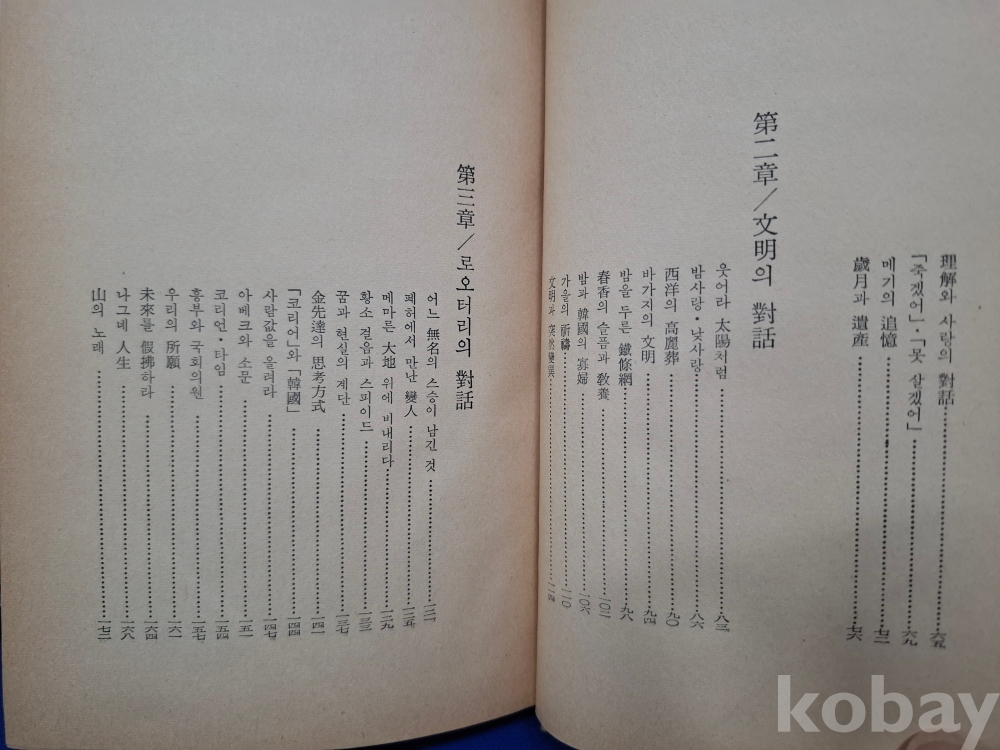 理解와 사랑의 對話 六五
「죽겠어」・「못 살겠어」 六九
메기의 追憶 七二
歲月과 遺產 七六
第二章/文明의 對話
웃어라 太陽처럼 八三
밤사랑・낮사랑 八六
西洋의 高麗葬 九〇
바가지의 文明 九四
밤을 두른 鐵條網 九八
春香의 슬픔과 敎養 一〇二
밤과 韓國의 寡婦 一〇六
가을의 祈禱 一一〇
文明과 突然變異 一一四
第三章/로오터리의 對話
어느 無名의 스승이 남긴 것 一二一
폐허에서 만난 變人 一二五
메마른 大地 위에 비내리다 一二九
황소 걸음과 스피이드 一三三
꿈과 현실의 계단 一三七
金先達의 思考方式 一四一
「코리어」와 「韓國」 一四四
사람값을 올려라 一四七
아베크와 소문 一五一
코리언・타임 一五四
흥부와 국회의원 一五七
우리의 所願 一六一
未來를 假拂하라 一六四
나그네 人生 一六八
山의 노래 一七二
kobay